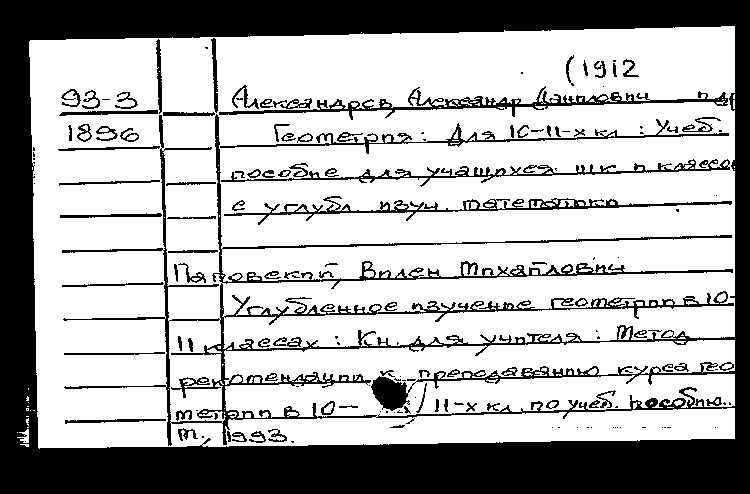 (1912
93-3 Александров, Александр Данилович и др
1896 Геометрия: Для 10-11-х кл : Учеб.
пособие для учащихся шк и классо
с углубл изуч. математики
Паповский, Вилен Михайлович
Углубленное изучение геометрии в 10-
11 классах : Кн. для учителя : Метод
рекомендации к преподаванию курса гео
метрии в 10— 11-х кл по учеб. пособию..
М., 1993.